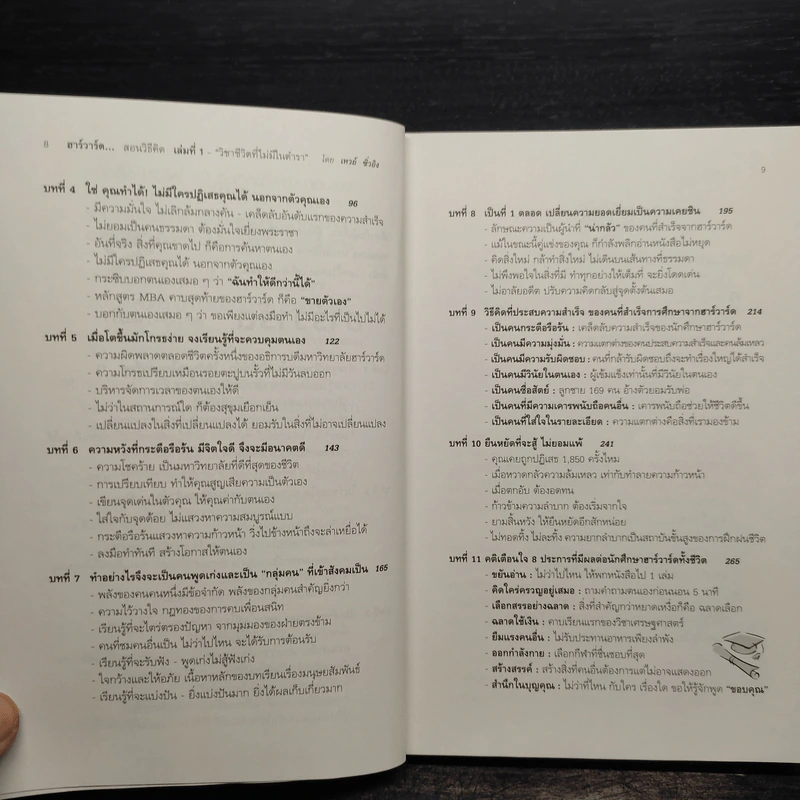 8 ฮาร์วาร์ด... สอนวิธีคิด เล่มที่ 1 - "วิชาชีวิตที่ไม่มีในตำรา" โดย เหวย์ ซิ่วอิง
บทที่ 4 ใช่ คุณทำได้! ไม่มีใครปฏิเสธคุณได้ นอกจากตัวคุณเอง 96
- มีความมั่นใจ ไม่เลิกล้มกลางคัน - เคล็ดลับอันดับแรกของความสำเร็จ
- ไม่ยอมเป็นคนธรรมดา ต้องมั่นใจเยี่ยงพระราชา
- อันที่จริง สิ่งที่คุณขาดไป ก็คือการค้นหาตนเอง
- ไม่มีใครปฏิเสธคุณได้ นอกจากตัวคุณเอง
- กระซิบบอกตนเองเสมอ ๆ ว่า "ฉันทำให้ดีกว่านี้ได้"
- หลักสูตร MBA คาบสุดท้ายของฮาร์วาร์ด ก็คือ "ขายตัวเอง"
- บอกกับตนเองเสมอ ๆ ว่า ขอเพียงแต่ลงมือทำ ไม่มีอะไรที่เป็นไปไม่ได้
บทที่ 5 เมื่อโตขึ้นมักโกรธง่าย จงเรียนรู้ที่จะควบคุมตนเอง 122
- ความผิดพลาดตลอดชีวิตครั้งหนึ่งของอธิการบดีมหาวิทยาลัยฮาร์วาร์ด
- ความโกรธเปรียบเหมือนรอยตะปูบนรั้วที่ไม่มีวันลบออก
- บริหารจัดการเวลาของตนเองให้ดี
- ไม่ว่าในสถานการณ์ใด ก็ต้องสุขุมเยือกเย็น
- เปลี่ยนแปลงในสิ่งที่เปลี่ยนแปลงได้ ยอมรับในสิ่งที่ไม่อาจเปลี่ยนแปลง
บทที่ 6 ความหวังที่กระตือรือร้น มีจิตใจดี จึงจะมีอนาคตดี 143
- ความโชคร้าย เป็นมหาวิทยาลัยที่ดีที่สุดของชีวิต
- การเปรียบเทียบ ทำให้คุณสูญเสียความเป็นตัวเอง
- เขียนจุดเด่นในตัวคุณ ให้คุณค่ากับตนเอง
- ใส่ใจกับจุดด้อย ไม่แสวงหาความสมบูรณ์แบบ
- กระตือรือร้นแสวงหาความก้าวหน้า วิ่งไปข้างหน้าถึงจะล่าเหยื่อได้
- ลงมือทำทันที สร้างโอกาสให้ตนเอง
บทที่ 7 ทำอย่างไรจึงจะเป็นคนพูดเก่งและเป็น "กลุ่มคน" ที่เข้าสังคมเป็น 165
- พลังของคนคนหนึ่งมีข้อจำกัด พลังของกลุ่มคนสำคัญยิ่งกว่า
- ความไว้วางใจ กฎทองของการคบเพื่อนสนิท
- เรียนรู้ที่จะไตร่ตรองปัญหา จากมุมมองของฝ่ายตรงข้าม
- คนที่ชมคนอื่นเป็น ไม่ว่าไปไหน จะได้รับการต้อนรับ
- เรียนรู้ที่จะรับฟัง - พูดเก่งไม่สู้ฟังเก่ง
- ใจกว้างและให้อภัย เนื้อหาหลักของบทเรียนเรื่องมนุษยสัมพันธ์
- เรียนรู้ที่จะแบ่งปัน - ยิ่งแบ่งปันมาก ยิ่งได้ผลเก็บเกี่ยวมาก
9
บทที่ 8 เป็นที่ 1 ตลอด เปลี่ยนความยอดเยี่ยมเป็นความเคยชิน 195
- ลักษณะความเป็นผู้นำที่ "น่ากลัว" ของคนที่สำเร็จจากฮาร์วาร์ด
- แม้ในขณะนี้คู่แข่งของคุณ ก็กำลังพลิกอ่านหนังสือไม่หยุด
- คิดสิ่งใหม่ กล้าทำสิ่งใหม่ ไม่เดินบนเส้นทางที่ธรรมดา
- ไม่พึงพอใจในสิ่งที่มี ทำทุกอย่างให้เต็มที่ จะยิ่งโดดเด่น
- ไม่อาลัยอดีต ปรับความคิดกลับสู่จุดตั้งต้นเสมอ
บทที่ 9 วิธีคิดที่ประสบความสำเร็จ ของคนที่สำเร็จการศึกษาจากฮาร์วาร์ด 214
- เป็นคนกระตือรือร้น : เคล็ดลับความสำเร็จของนักศึกษาฮาร์วาร์ด
- เป็นคนมีความมุ่งมั่น : ความแตกต่างของคนประสบความสำเร็จและคนล้มเหลว
- เป็นคนมีความรับผิดชอบ : คนที่กล้ารับผิดชอบถึงจะทำเรื่องใหญ่ได้สำเร็จ
- เป็นคนมีวินัยในตนเอง : ผู้เข้มแข็งเท่านั้นที่มีวินัยในตนเอง
- เป็นคนซื่อสัตย์ : ลูกชาย 169 คน อ้างตัวยอมรับพ่อ
- เป็นคนที่มีความเคารพนับถือคนอื่น : เคารพนับถือช่วยให้ชีวิตดีขึ้น
- เป็นคนที่ใส่ใจในรายละเอียด : ความแตกต่างคือสิ่งที่เรามองข้าม
บทที่ 10 ยืนหยัดที่จะสู้ ไม่ยอมแพ้ 241
- คุณเคยถูกปฏิเสธ 1,850 ครั้งไหม
- เมื่อหวาดกลัวความล้มเหลว เท่ากับทำลายความก้าวหน้า
- เมื่อตกอับ ต้องอดทน
- ก้าวข้ามความลำบาก ต้องเริ่มจากใจ
- ยามสิ้นหวัง ให้ยืนหยัดอีกสักหน่อย
- ไม่ทอดทิ้ง ไม่ละทิ้ง ความยากลำบากเป็นสถาบันขั้นสูงของการฝึกฝนชีวิต
บทที่ 11 คติเตือนใจ 8 ประการที่มีผลต่อนักศึกษาฮาร์วาร์ดทั้งชีวิต 265
- ขยันอ่าน : ไม่ว่าไปไหน ให้พกหนังสือไป 1 เล่ม
- คิดใคร่ครวญอยู่เสมอ : ถามคำถามตนเองก่อนนอน 5 นาที
- เลือกสรรอย่างฉลาด : สิ่งที่สำคัญกว่าหยาดเหงื่อก็คือ ฉลาดเลือก
- ฉลาดใช้เงิน : คาบเรียนแรกของวิชาเศรษฐศาสตร์
- ยืมแรงคนอื่น : ไม่รับประทานอาหารเพียงลำพัง
- ออกกำลังกาย : เลือกกีฬาที่ชื่นชอบที่สุด
- สร้างสรรค์ : สร้างสิ่งที่คนอื่นต้องการแต่ไม่อาจแสดงออก
- สำนึกในบุญคุณ : ไม่ว่าที่ไหน กับใคร เรื่องใด ขอให้รู้จักพูด "ขอบคุณ"